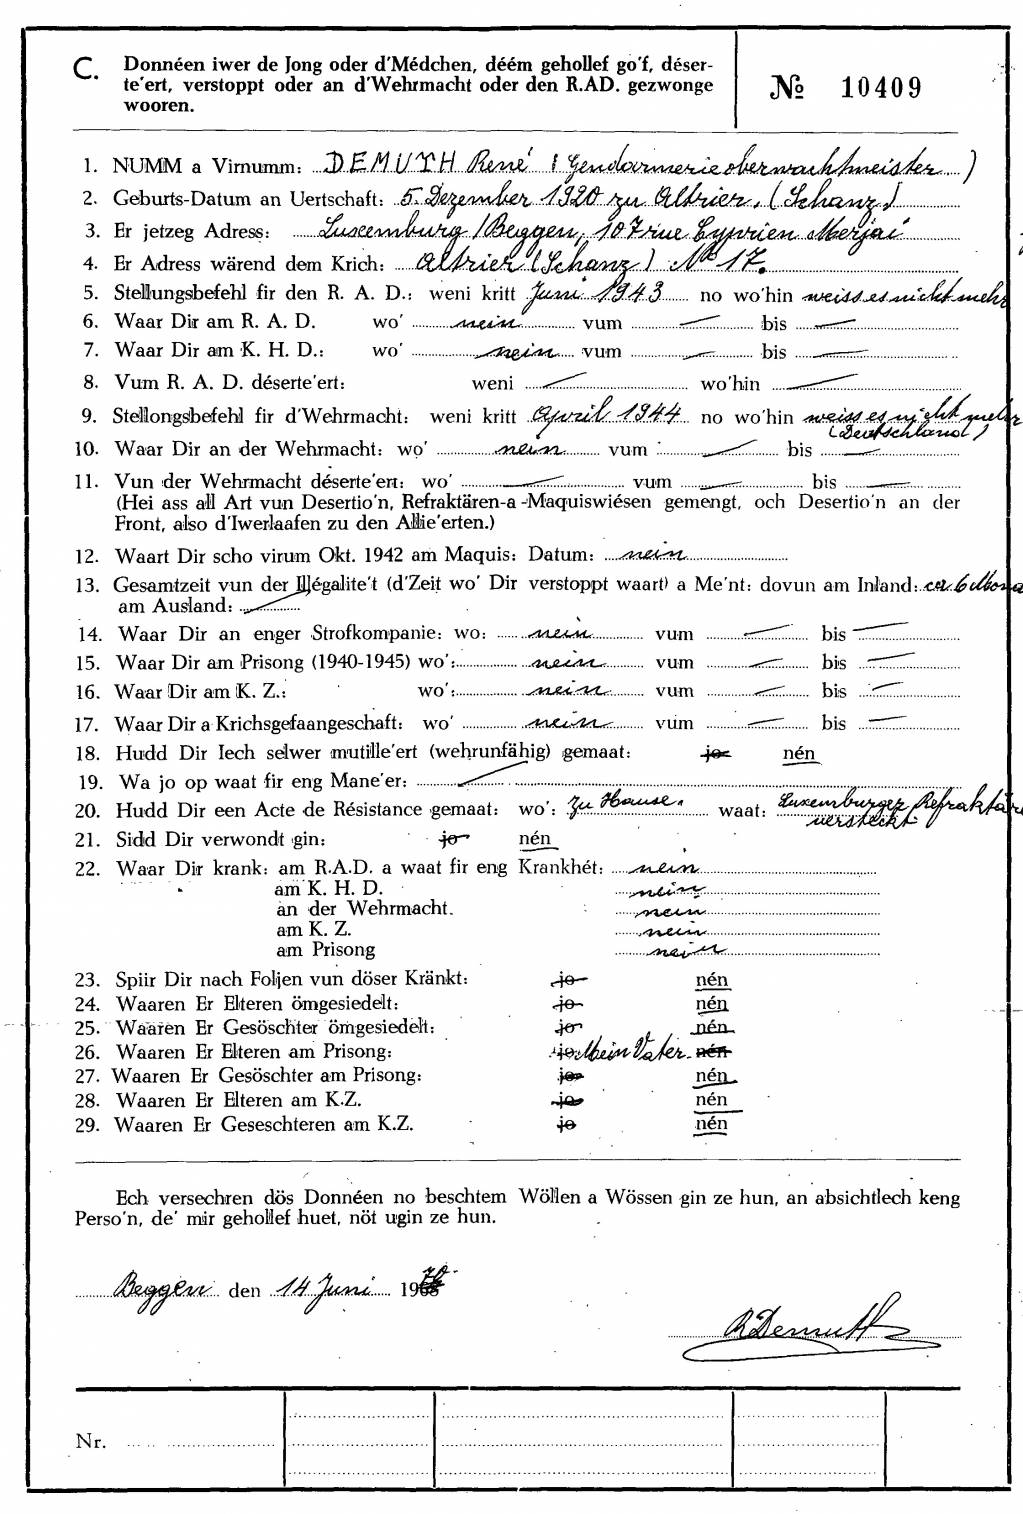 C. Donnéen iwer de Jong oder d'Médchen, déém gehollef go'f, déser-
te'ert, verstoppt oder an d'Wehrmacht oder den R.AD. gezwonge
wooren.
№ 10409
1. NUMM a Virnumm: DEMUTH René (Gendarmerieoberwachtmeister)
2. Geburts-Datum an Uertschaft: 5. Dezember 1920 zu Altrier. (Schanz)
3. Er jetzeg Adress: Luxemburg/Beggen, 107 rue Cyprien Merjai
4. Er Adress wärend dem Krich: Altrier (Schanz) No 17.
5. Stellungsbefehl fir den R. A. D.: weni kritt Juni 1943 no wo'hin weiss es nicht mehr
6. Waar Dir am R. A. D. wo' nein vum — bis —
7. Waar Dir am K. H. D.: wo' nein vum — bis —
8. Vum R. A. D. déserte'ert: weni — wo'hin —
9. Stellongsbefehl fir d'Wehrmacht: weni kritt April 1944 no wo'hin weiss es nicht mehr
(Deutschland)
10. Waar Dir an der Wehrmacht: wo' nein vum — bis —
11. Vun der Wehrmacht déserte'ert: wo' — vum — bis —
(Hei ass all Art vun Desertio'n, Refraktären-a -Maquiswiésen gemengt, och Desertio'n an der
Front, also d'Iwerlaafen zu den Allie'erten.)
12. Waart Dir scho virum Okt. 1942 am Maquis: Datum: nein
13. Gesamtzeit vun der Illégalite't (d'Zeit wo' Dir verstoppt waart) a Me'nt: dovun am Inland: ca 6 Mona
am Ausland: —
14. Waar Dir an enger Strofkompanie: wo: nein vum — bis —
15. Waar Dir am Prison (1940-1945) wo': nein vum — bis —
16. Waar Dir am K. Z.: wo': nein vum — bis —
17. Waar Dir a Krichsgefaangeschaft: wo' nein vum — bis —
18. Hudd Dir Iech selwer mutille'ert (wehrunfähig) gemaat: jo nén
19. Wa jo op waat fir eng Mane'er: —
20. Hudd Dir een Acte de Résistance gemaat: wo': Zu Hause. waat: Luxemburger Refraktäre
versteckt
21. Sidd Dir verwondt gin: jo nén
22. Waar Dir krank: am R.A.D. a waat fir eng Krankhét: nein
am K. H. D. nein
an der Wehrmacht. nein
am K. Z. nein
am Prisong nein
23. Spiir Dir nach Foljen vun döser Kränkt: jo nén
24. Waaren Er Elteren ömgesiedelt: jo nén
25. Waaren Er Gesöschter ömgesiedelt: jo nén
26. Waaren Er Elteren am Prisong: jo Mein Vater nén
27. Waaren Er Gesöschter am Prisong: jo nén
28. Waaren Er Elteren am K.Z. jo nén
29. Waaren Er Geseschteren am K.Z. jo nén
Ech versechren dös Donnéen no beschtem Wöllen a Wössen gin ze hun, an absichtlech keng
Perso'n, de' mir gehollef huet, nöt ugin ze hun.
Beggen den 14 Juni 1970
R Demuth
Nr.